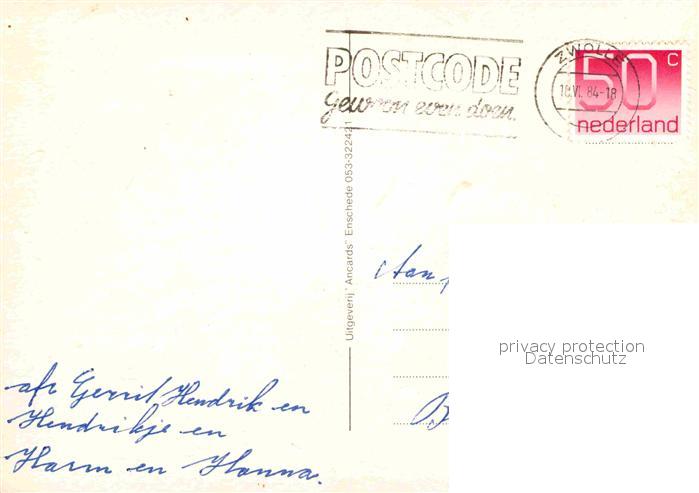 POSTCODE
gewoon even doen.
ZWOLLE
18.VI. 84-18
50 C
nederland
Uitgeverij "Ancards" Enschede 053-322421
Aan
privacy protection
Datenschutz
B
afz Gerrit Hendrik en
Hendrikje en
Harm en Hanna.